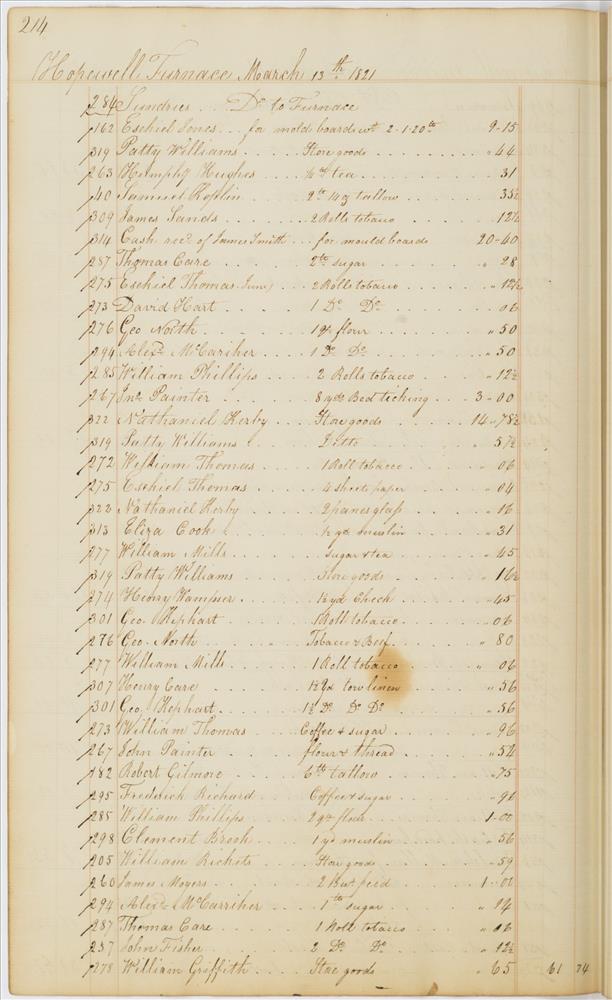 214
Hopewell Furnace March 13th 1821
284 Sundries . . . Dr. to Furnace
162 Eschiel Jones . . . for mold boards wt 2-1-20lb 9-15
319 Patty Williams . . . . . Store goods . . . . . . . . . " 44
263 Humphy Hughes . . . . tea . . . . . . . 31
40 Samuel Koplin . . . . 2lb 14oz tallow . . . . . 35½
309 James Sands . . . . . 2 Rolls tobaco . . . . 12½
314 Cash recd. of James Smith . . . for mould boards 20-40
287 Thomas Care . . . . 2lb sugar . . . . . " 28
275 Eschiel Thomas Junr . . . 2 Rolls tobaco . . . . . 12½
273 David Hart . . . . . 1 Do Do . . . . . 06
276 Geo North . . . . . 1 qr flour . . . . . " 50
294 Alexr McCariher . . . . 1 Do Do . . . . . " 50
285 William Phillips . . . . 2 Rolls tobaco . . . . " 12½
267 Jno Painter . . . . 8 yds Bed ticking . . . 3-00
322 Nathaniel Kerby . . . Store goods . . . . . 14-78½
319 Patty Williams . . . . Ditto . . . . . . " 57½
272 William Thomas . . . . . 1 Roll tobacco . . . . " 06
275 Eschiel Thomas . . . . 4 sheets paper . . . . " 04
322 Nathaniel Kerby . . . . 2 panes glass . . . . " 16
313 Eliza Cook . . . . ½ yd muslin . . . . " 31
277 William Mills . . . . . sugar & tea . . . . . " 45
319 Patty Williams . . . . Store goods . . . . . " 16½
274 Henry Hampser . . . . 1½ yd Check . . . . " 45
301 Geo. Kephart . . . . 1 Roll tobaco . . . . " 06
276 Geo. North . . . . . Tobacco & Beef . . . . " 80
277 William Mills . . . . . 1 Roll tobaco . . . . " 06
307 Henry Care . . . . 1½ Yd tow linen . . . . " 56
301 Geo. Kephart . . . . 1½ Do Do Do . . . . " 56
273 William Thomas . . . . Coffee & sugar . . . . " 96
267 John Painter . . . . flour & thread . . . . " 54
182 Robert Gilmore . . . . 6lb tallow . . . . " 75
295 Fredrick Richard . . . Coffee & sugar . . . . " 91
285 William Phillips . . . . 2 qr flour . . . . 1-00
298 Clement Brook . . . . 1 yd muslin . . . . " 56
205 William Rickets . . . . Store goods . . . . " 59
260 James Moyers . . . . 2 . . . . 1-00
294 Alexr McCarriher . . . . 1lb sugar . . . . " 14
287 Thomas Care . . . . 1 Roll tobaco . . . . " 06
237 John Fisher . . . . 2 Do Do . . . . " 12½
278 William Griffith . . . . Store goods . . . . " 65 61 74